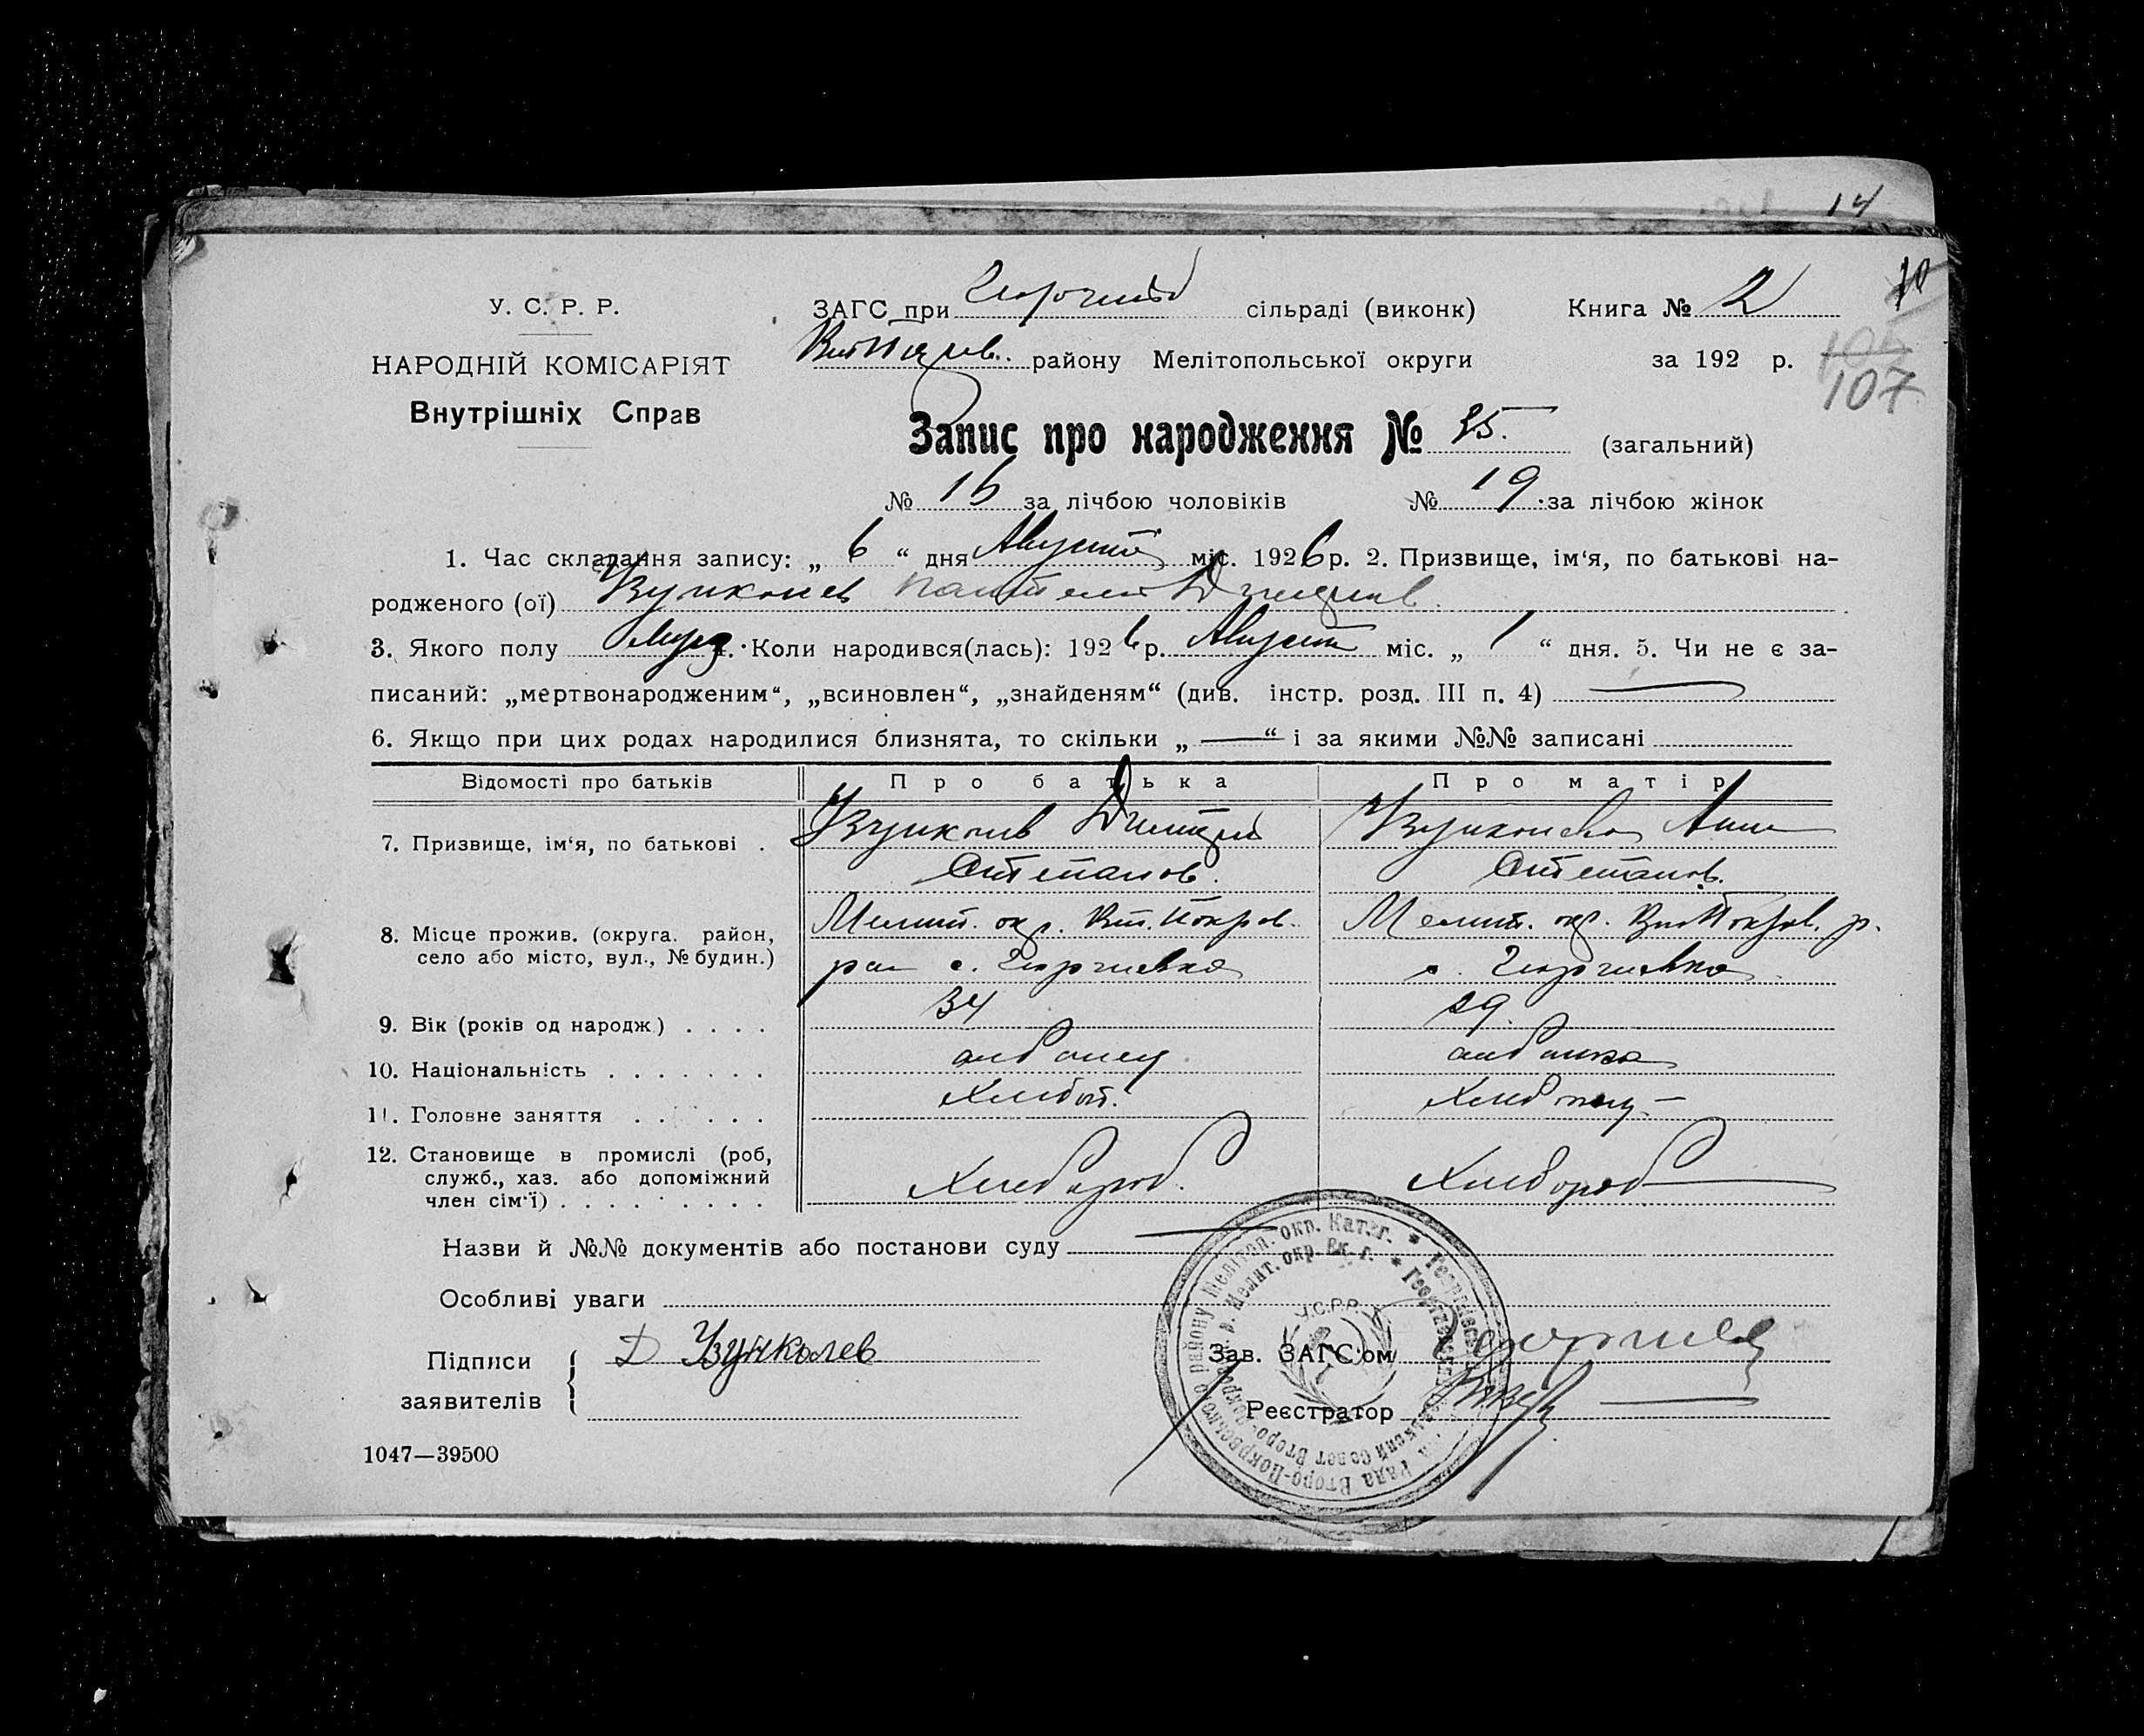 14
У. С. Р. Р.
ЗАГС при сільраді (виконк) Книга № 2
10
НАРОДНІЙ КОМІСАРІЯТ
району Мелітопольської округи за 192 р.
107
Внутрішніх Справ
Запис про народження № 35. (загальний)
№ 16 за лічбою чоловіків № 19 за лічбою жінок
1. Час складання запису: „ 6 “ дня Августа міс. 1926 р. 2. Призвище, ім‘я, по батькові на-
родженого (ої) Узунколев Пантелей Дмитриев.
3. Якого полу Муж. 4. Коли народився(лась): 1926 р. Август міс. „ 1 “ дня. 5. Чи не є за-
писаний: „мертвонародженим“, „всиновлен“, „знайденям“ (див. інстр. розд. III п. 4) —
6. Якщо при цих родах народилися близнята, то скільки „ — “ і за якими №№ записані
Відомості про батьків Про батька Про матір
7. Призвище, ім‘я, по батькові . Узунколев Дмитрий Узунколева Анна
Степанов. Степанов.
8. Місце прожив. (округа. район, село або місто, вул., № будин.) Мелит. окр. Вт. Покров. Мелит. окр. Вт Покров. р.
рай с. Георгиевка с. Георгиевка
9. Вік (років од народж.) . . . . 34 29.
10. Національність . . . . . . . албанец албанка
11. Головне заняття . . . . . .
12. Становище в промислі (роб,
служб., хаз. або допоміжний
член сім‘ї) . . . . . . . . . Хлебороб. Хлебороб
Назви й №№ документів або постанови суду —
Особливі уваги
Підписи заявителів Д Узунколев
Зав. ЗАГС‘ом
Реєстратор
У.С.Р.Р.
1047—39500